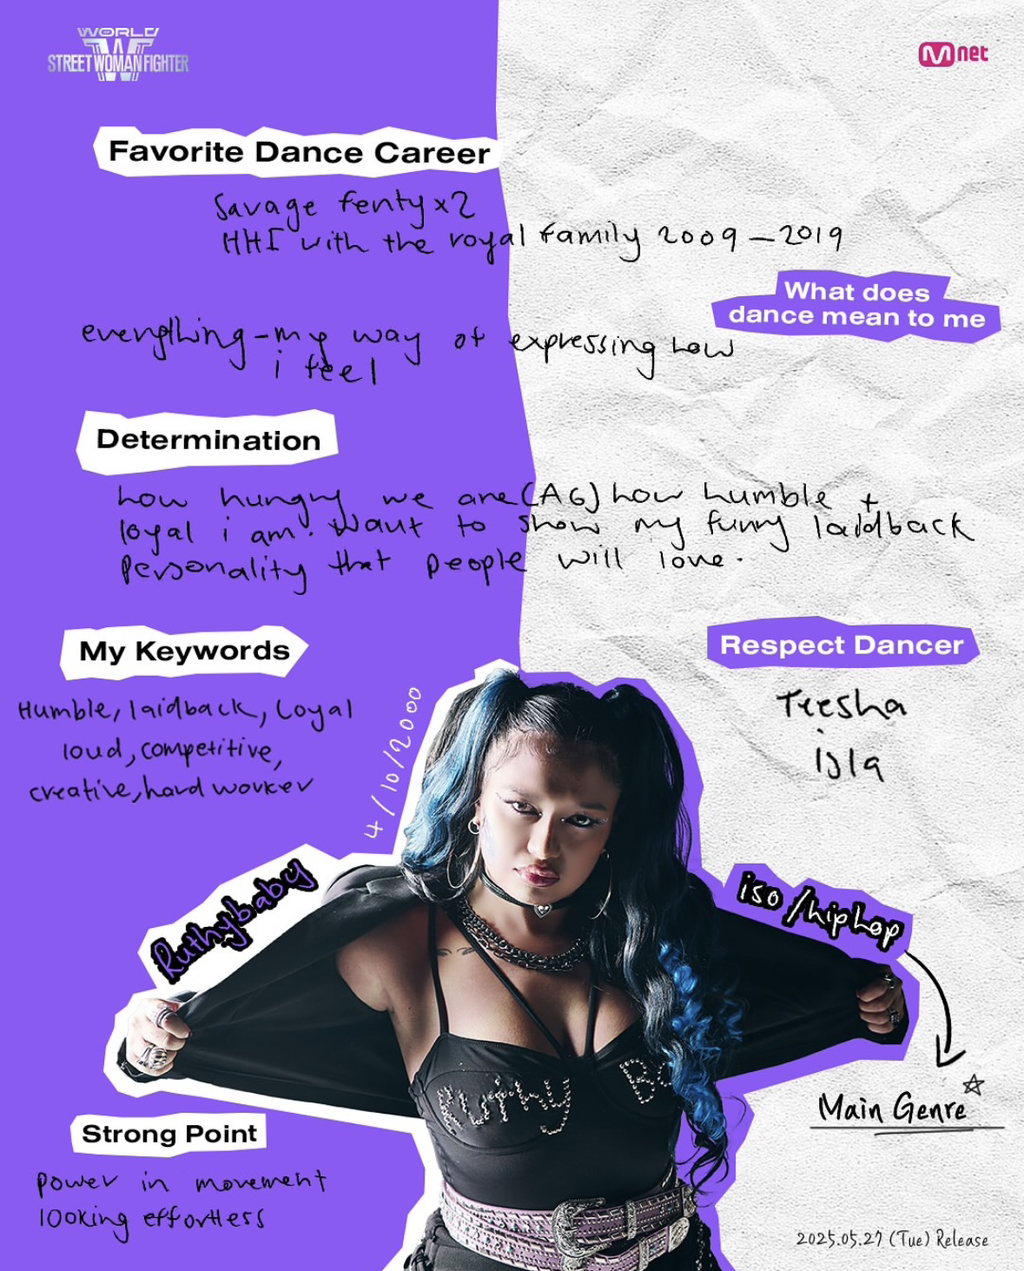 WORLD
W
STREET WOMAN FIGHTER
Mnet
Favorite Dance Career
Savage fenty x2
HHI with the royal family 2009 – 2019
What does
dance mean to me
everything - my way of expressing how
i feel
Determination
how hungry we are (AG) how humble +
loyal i am. Want to show my funny laidback
Personality that people will love.
My Keywords
Humble, laidback, Loyal
loud, competitive,
creative, hard worker
Respect Dancer
Teesha
isla
4/10/2000
Ruthybaby
iso/hiphop
Main Genre
Ruthy
Strong Point
Power in movement
looking effortless
2025.05.27 (Tue) Release